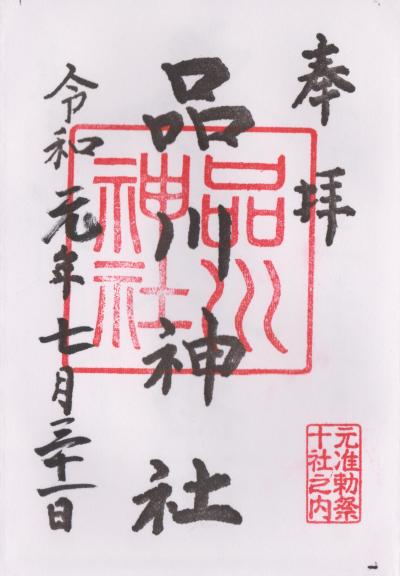 奉拝
品川神社
品川
神社
令和元年七月三十一日
元准勅祭
十社之内